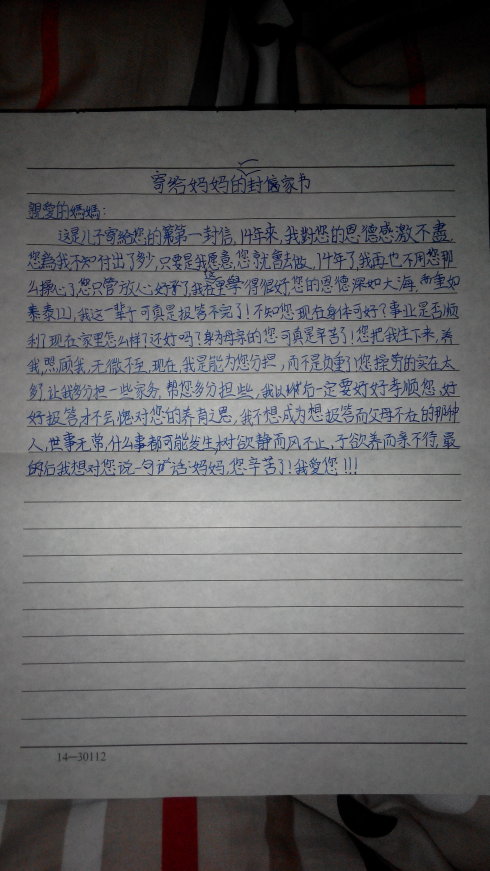 寄给妈妈的封信家书
親愛的媽媽：
这是儿子寄給您的第一封信，14年來，我對您的恩德感激不盡，
您為我不知付出了多少，只要是我愿意，您就會去做，14年了，我再也不用您那
么操心了，您只管放心好了，我在這里學得很好，您的恩德深如大海，重如
泰山，我这一辈子可真是报答不完了！不知您现在身体可好？事业是否顺
利？现在家里怎么样了还好吗？身为母亲的您可真是辛苦了！您把我生下来，养
我，照顾我，无微不至，现在，我是能为您分担，而不是负重！您操劳的实在太
多了，让我多分担一些家务，帮您多分担些，我以后一定要好好孝顺您，好
好报答才不会愧对您的养育之恩，我不想成为想报答而父母不在的那种
人，世事无常，什么事都可能发生，树欲静而风不止，子欲养而亲不待，最
后我想对您说一句话：妈妈，您辛苦了！我愛您！！！
14—30112